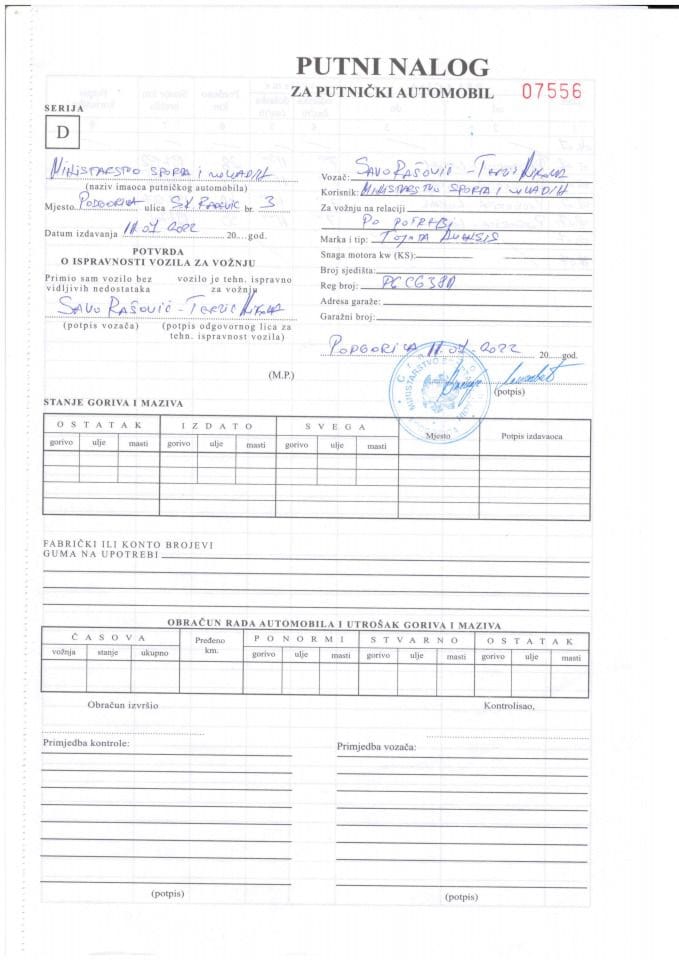 PUTNI NALOG
ZA PUTNIČKI AUTOMOBIL 07556
SERIJA
D
MINISTARSTVO SPORTA I MLADIH
(naziv imaoca putničkog automobila)
Mjesto PODGORICA ulica br. 3
Datum izdavanja 11.07.2022 20....god.
POTVRDA
O ISPRAVNOSTI VOZILA ZA VOŽNJU
Primio sam vozilo bez vidljivih nedostataka
vozilo je tehn. ispravno za vožnju
SAVO RAŠOVIĆ - TERZIĆ NIKOLA
(potpis vozača) (potpis odgovornog lica za tehn. ispravnost vozila)
(M.P.)
Vozač: SAVO RAŠOVIĆ - TERZIĆ NIKOLA
Korisnik: MINISTARSTVO SPORTA I MLADIH
Za vožnju na relaciji
PO POTREBI
Marka i tip: TOJOTA AVENSIS
Snaga motora kw (KS):
Broj sjedišta:
Reg broj: PGCG380
Adresa garaže:
Garažni broj:
PODGORICA 11.07.2022 20....god.
(potpis)
STANJE GORIVA I MAZIVA
OSTATAK IZDATO SVEGA Mjesto Potpis izdavaoca
gorivo ulje masti gorivo ulje masti gorivo ulje masti
FABRIČKI ILI KONTO BROJEVI
GUMA NA UPOTREBI
OBRAČUN RADA AUTOMOBILA I UTROŠAK GORIVA I MAZIVA
ČASOVA Pređeno km. PO NORMI STVARNO OSTATAK
vožnja stanje ukupno gorivo ulje masti gorivo ulje masti gorivo ulje masti
Obračun izvršio Kontrolisao,
Primjedba kontrole: Primjedba vozača:
(potpis) (potpis)